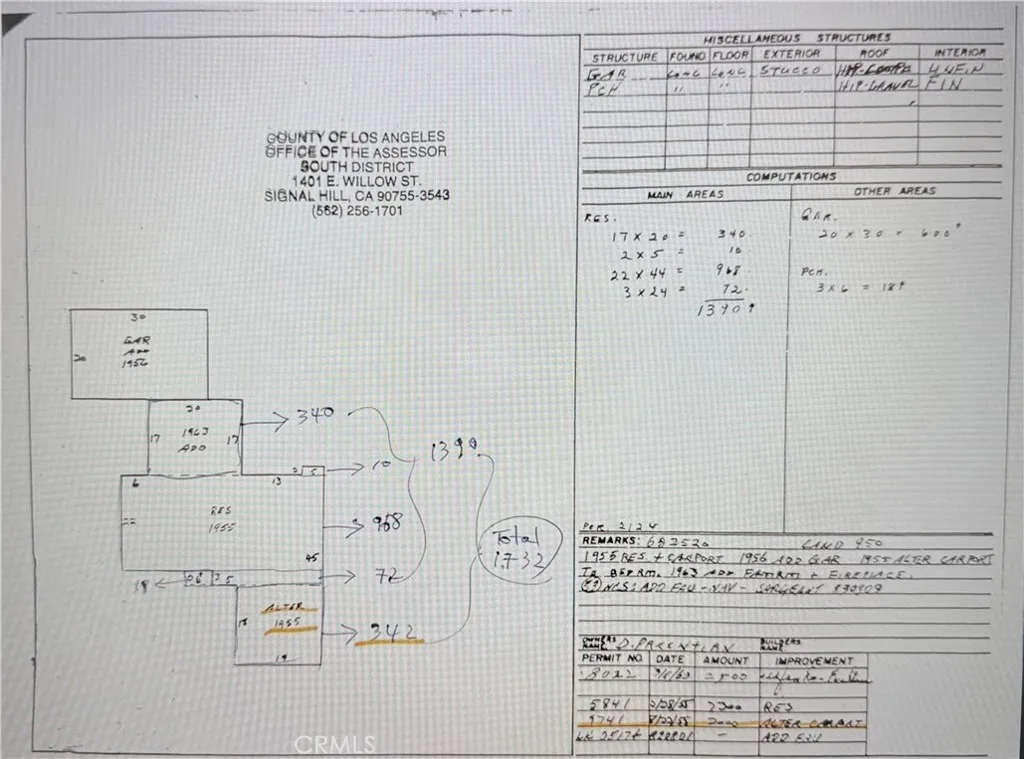 MISCELLANEOUS STRUCTURES
STRUCTURE FOUND FLOOR EXTERIOR ROOF INTERIOR
GAR CONC CONC STUCCO UNFIN
PCH " " HIP-GRAVEL FIN
COUNTY OF LOS ANGELES
OFFICE OF THE ASSESSOR
SOUTH DISTRICT
1401 E. WILLOW ST.
SIGNAL HILL, CA 90755-3543
(562) 256-1701
COMPUTATIONS
MAIN AREAS OTHER AREAS
RES.
17 x 20 = 340
2 x 5 = 10
22 x 44 = 968
3 x 24 = 72
1390
GAR.
20 x 30 = 600
PCH.
3 x 6 = 18
30
GAR
ADD
1956
20
20
17 1963 17
ADD
340
10
1390
6 13 2 5
RES
1955
22
968
45
Total
1,732
18
72
ALTER
1955
18
342
19
PER. 212'
REMARKS: 682520 LAND 950
1955 RES. + CARPORT 1956 ADD GAR 1955 ALTER CARPORT
TO BED RM. 1963 ADD FAM RM + FIREPLACE.
NCS: ADD FAU - NAV - SARGEANT 890909
OWNERS NAME D. BUILDERS NAME
PERMIT NO. DATE AMOUNT IMPROVEMENT
3022 2500
5841 2/28/55 RES
9741 8/22/55 2000 ALTER CARPORT
-
CRMLS